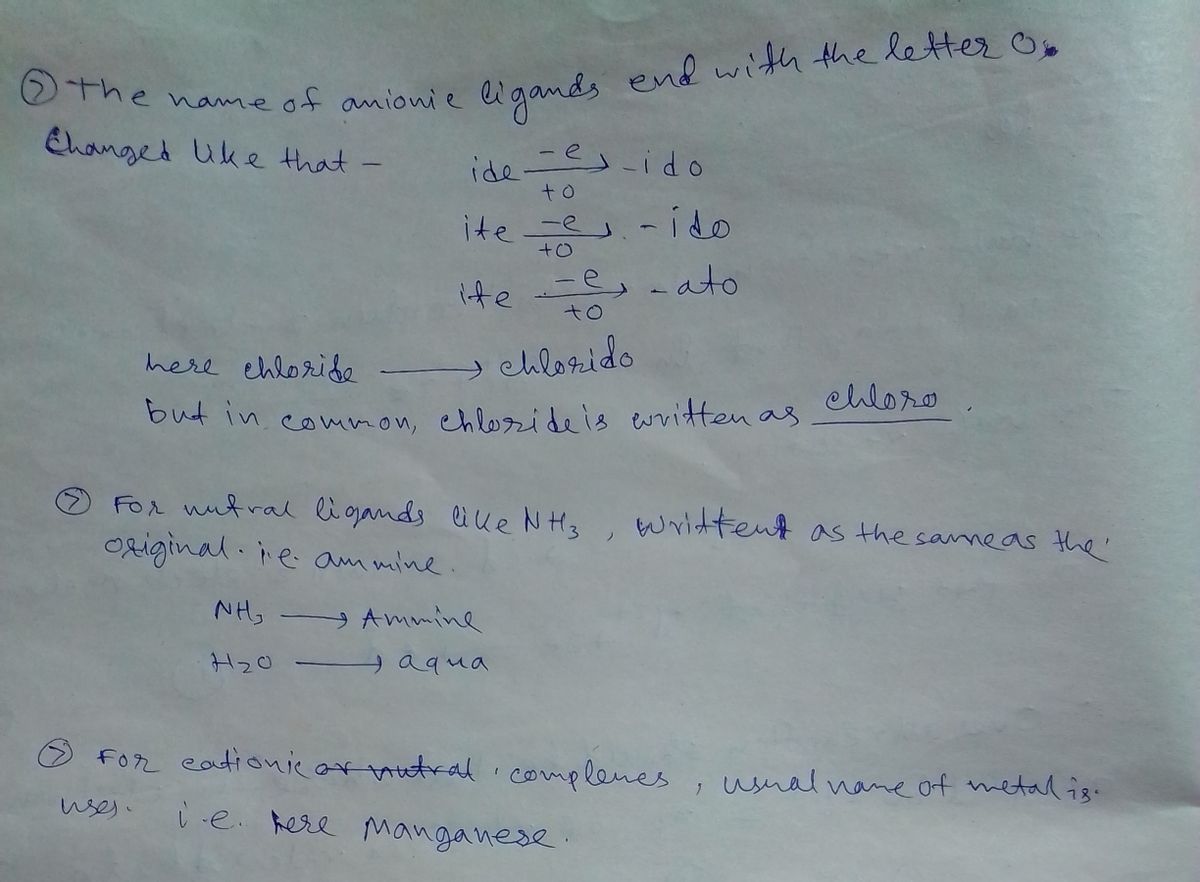 ⊙ The name of anionic ligands end with the letter O.
Changed like that -
ide -e/+o → -ido
ite -e/+o → -ido
ite -e/+o → -ato
here chloride → chlorido
but in common, chloride is written as chloro.
⊙ For nutral ligands like NH3, written as the same as the
original. i.e. ammine.
NH3 → Ammine
H2O → aqua
⊙ For cationic or nutral complenes, usual name of metal is
uses. i.e. here Manganese.